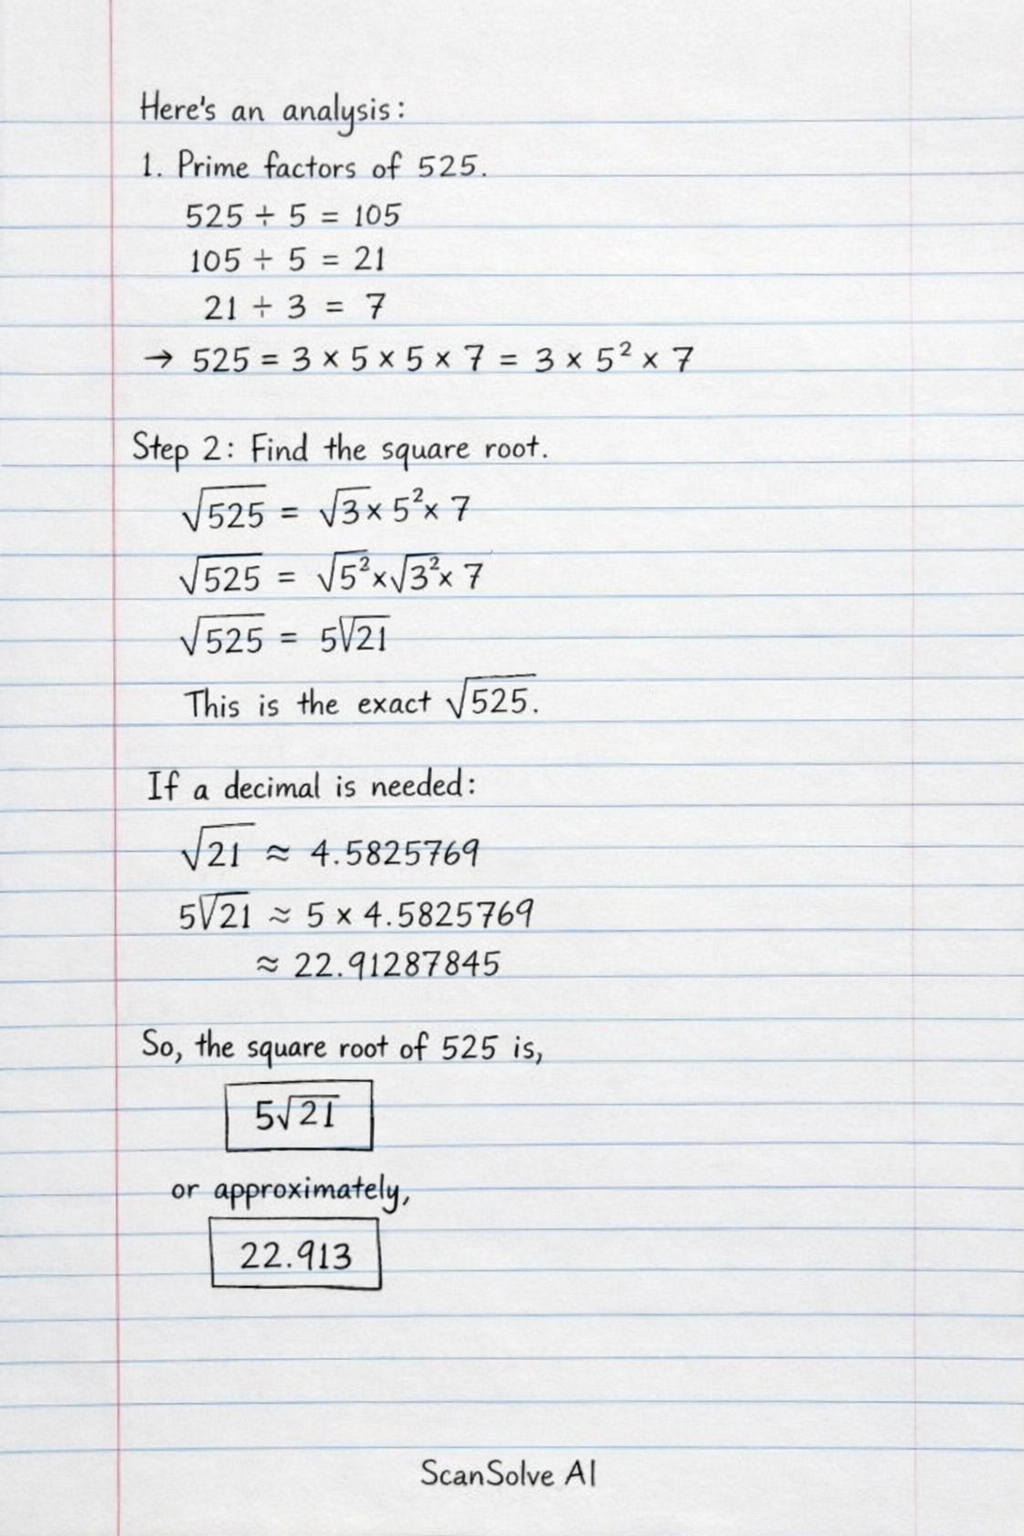 Here's an analysis:
1. Prime factors of 525.
525 ÷ 5 = 105
105 ÷ 5 = 21
21 ÷ 3 = 7
→ 525 = 3 × 5 × 5 × 7 = 3 × 5² × 7
Step 2: Find the square root.
√525 = √3 × 5² × 7
√525 = √5² × √3² × 7
√525 = 5√21
This is the exact √525.
If a decimal is needed:
√21 ≈ 4.5825769
5√21 ≈ 5 × 4.5825769
≈ 22.91287845
So, the square root of 525 is,
5√21
or approximately,
22.913
ScanSolve AI